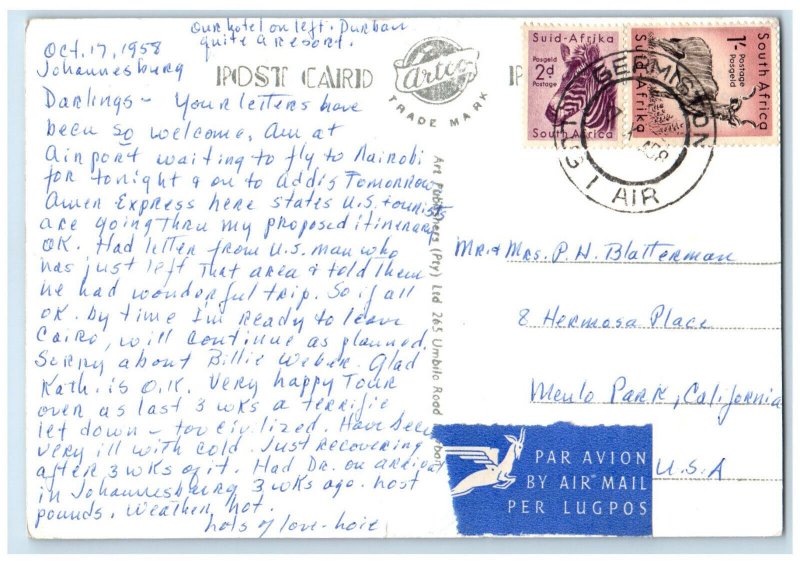 Our hotel on left. Durban
quite a resort.
Oct. 17, 1958
Johannesburg
POST CARD
Artco
TRADE MARK
Darlings - Your letters have
been so welcome. Am at
Airport waiting to fly to Nairobi
for tonight & on to Addis Tomorrow
Amer Express here states U.S. tourists
are going thru my proposed itinerary
OK. Had letter from U.S. man who
has just left that area & told them
he had wonderful trip. So if all
OK. by time I'm ready to leave
Cairo, will continue as planned.
Sorry about Billie Weber. Glad
Kath. is O.K. Very happy Tour
over as last 3 wks a terrific
let down - too civilized. Have been
very ill with cold. Just recovering
after 3 wks of it. Had Dr. on arrival
in Johannesburg 3 wks ago. Lost
pounds. Weather hot.
Lots of love -
Art Publishers (Pty) Ltd 265 Umbilo Road
Suid-Afrika
Posgeld
2d
Postage
South Africa
South Africa
1/-
Postage
Posgeld
Suid-Afrika
GERMISTON
AIR
Mr. & Mrs. P. H. Blatterman
8 Hermosa Place
Menlo Park, California
U.S.A
PAR AVION
BY AIR MAIL
PER LUGPOS